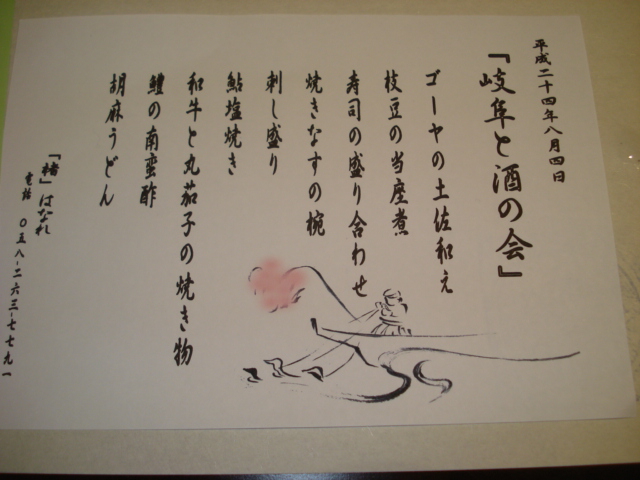 平成二十四年八月四日
「岐阜と酒の会」
ゴーヤの土佐和え
枝豆の当座煮
寿司の盛り合わせ
焼きなすの椀
刺し盛り
鮎塩焼き
和牛と丸茄子の焼き物
鱧の南蛮酢
胡麻うどん
「楮」はなれ
電話 〇五八-二六三-七七九一